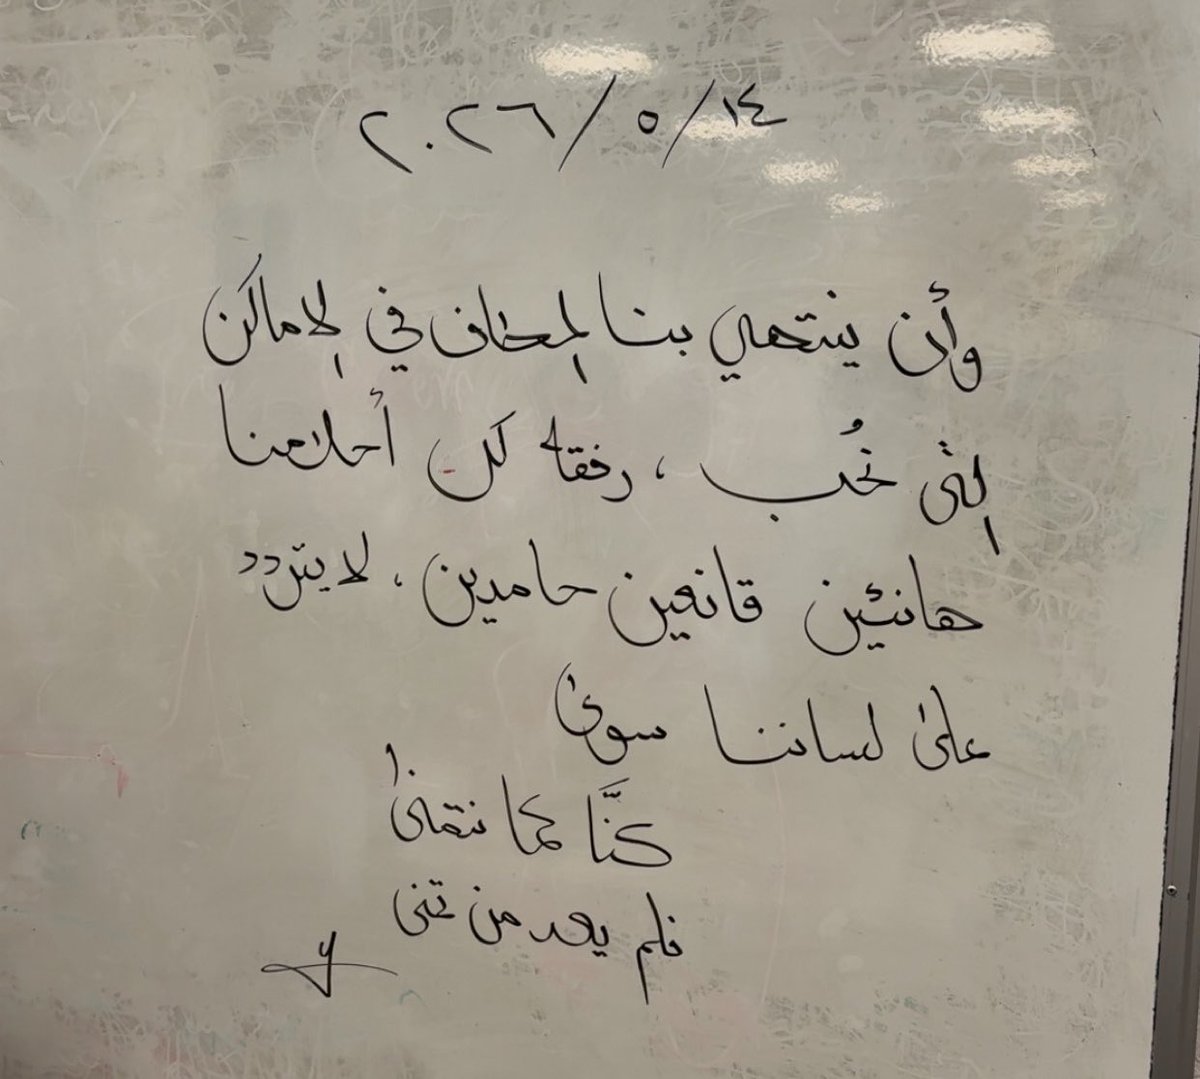 ٢٠٢٦/٥/١٤
وأن ينتهي بنا المطاف في الاماكن
التي نُحب ، رفقة كل أحلامنا
هانئين قانعين حامدين ، لا يتردد
على لساننا سوى
كنَّا كما نتمنى
فلم يعد من تمنى